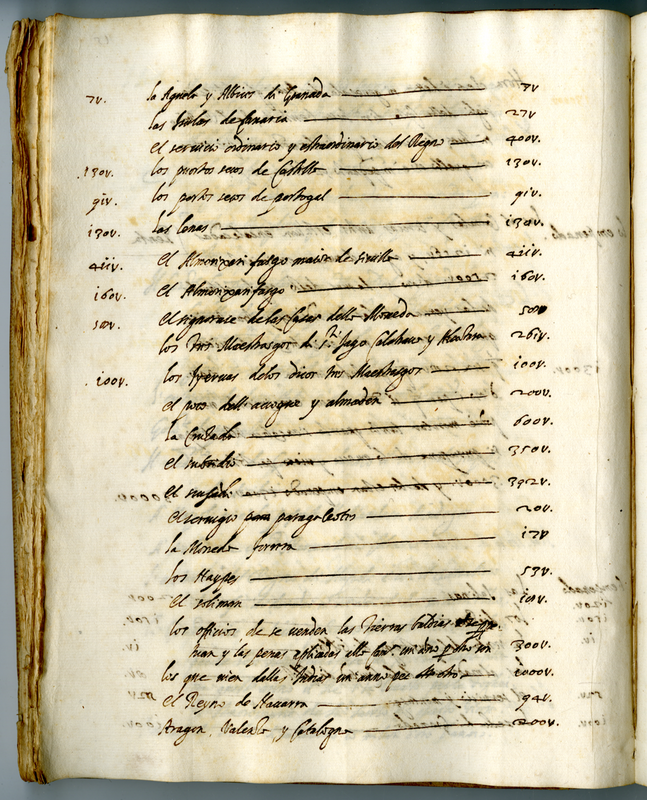 7v. la Aguela y Albices di Granada 7v
las Yuslas de Canaria 27v
el servicio ordinario y estraordinario del Regno 400v.
130v. los puertos secos de Castilla 130v.
91v. los portos secos de portogal 91v.
130v. las lanas 130v.
411v. El Almorixarifasgo maior de siuilla 411v.
160v. El Almorixarifasgo 160v.
50v. El signorase de las Casas della Moneda 50v
los tres Maestrasgos di s.ti Jago Calatraua y 261v.
100v. los yeruas delos dicos tres Maestrasgos 100v.
el poco dell' acogue y almaden 200v.
la Cruzada 600v.
El subsidio 350v.
El 392v.
El seruigio para paragaleotes 20v.
la Moneda forera 17v
los Haypes 53v.
El soliman 10v.
los officios de se uenden las Tierras baldias
y las penas aplicadas alla un año 300v.
los que uien dallas Indias un anno por otro 1000v.
el Reyno de Nauarra 94v.
Aragon Valentia y Catalogna 200v.